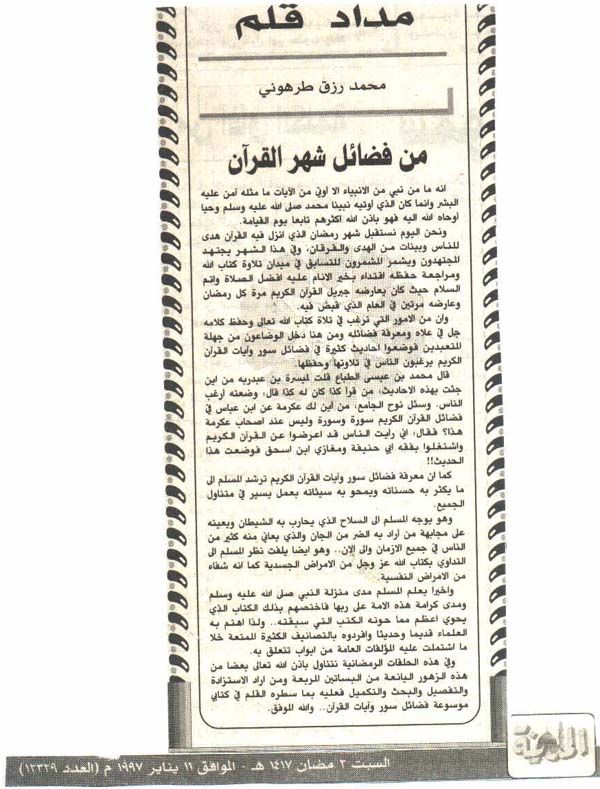 مداد قلم
محمد رزق طرهوني
من فضائل شهر القرآن
انه ما من نبي من الأنبياء الا اوتي من الآيات ما مثله آمن عليه
البشر وانما كان الذي اوتيه نبينا محمد صلى الله عليه وسلم وحيا
اوحاه الله اليه فهو باذن الله اكثرهم تابعا يوم القيامة.
ونحن اليوم نستقبل شهر رمضان الذي انزل فيه القرآن هدى
للناس وبينات من الهدى والفرقان، وفي هذا الشهر يجتهد
المجتهدون ويشمر المشمرون للتسابق في ميدان تلاوة كتاب الله
ومراجعة حفظه اقتداء بخير الانام عليه افضل الصلاة واتم
السلام حيث كان يعارضه جبريل القرآن الكريم مرة كل رمضان
وعارضه مرتين في العام الذي قبض فيه.
وان من الامور التي ترغب في تلاة كتاب الله تعالى وحفظ كلامه
جل في علاه ومعرفة فضائله ومن هنا دخل الوضاعون من جهلة
المتعبدين فوضعوا احاديث كثيرة في فضائل سور وآيات القرآن
الكريم يرغبون الناس في تلاوتها وحفظها.
قال محمد بن عيسى الطباع قلت لميسرة بن عبدربه من اين
جئت بهذه الاحاديث: من قرأ كذا كان له كذا قال: وضعته ارغب
الناس. وسئل نوح الجامع: من اين لك عكرمة عن ابن عباس في
فضائل القرآن الكريم سورة وسورة وليس عند اصحاب عكرمة
هذا؟ فقال: اني رأيت الناس قد اعرضوا عن القرآن الكريم
واشتغلوا بفقه ابي حنيفة ومغازي ابن اسحق فوضعت هذا
الحديث!!
كما ان معرفة فضائل سور وآيات القرآن الكريم ترشد المسلم الى
ما يكثر به حسناته ويمحو به سيئاته بعمل يسير في متناول
الجميع.
وهو يوجه المسلم الى السلاح الذي يحارب به الشيطان ويعينه
على مجابهة من أراد به الضر من الجان والذي يعاني منه كثير من
الناس في جميع الازمان والى الان.. وهو ايضا يلفت نظر المسلم الى
التداوي بكتاب الله عز وجل من الامراض الجسدية كما انه شفاء
من الامراض النفسية.
واخيرا يعلم المسلم مدى منزلة النبي صلى الله عليه وسلم
ومدى كرامة هذه الامة على ربها فاختصهم بذلك الكتاب الذي
يحوي اعظم مما حوته الكتب التي سبقته.. ولذا اهتم به
العلماء قديما وحديثا وافردوه بالتصانيف الكثيرة الممتعة خلا
ما اشتملت عليه المؤلفات العامة من ابواب تتعلق به.
وفي هذه الحلقات الرمضانية نتناول باذن الله تعالى بعضا من
هذه الزهور اليانعة من البساتين المربعة ومن اراد الاستزادة
والتفصيل والبحث والتكميل فعليه بما سطره القلم في كتابي
موسوعة فضائل سور وآيات القرآن.. والله الموفق.
المدينة
السبت ٢ مضان ١٤١٧ هـ - الموافق ١١ يناير ١٩٩٧ م (العدد ١٢٣٢٩)